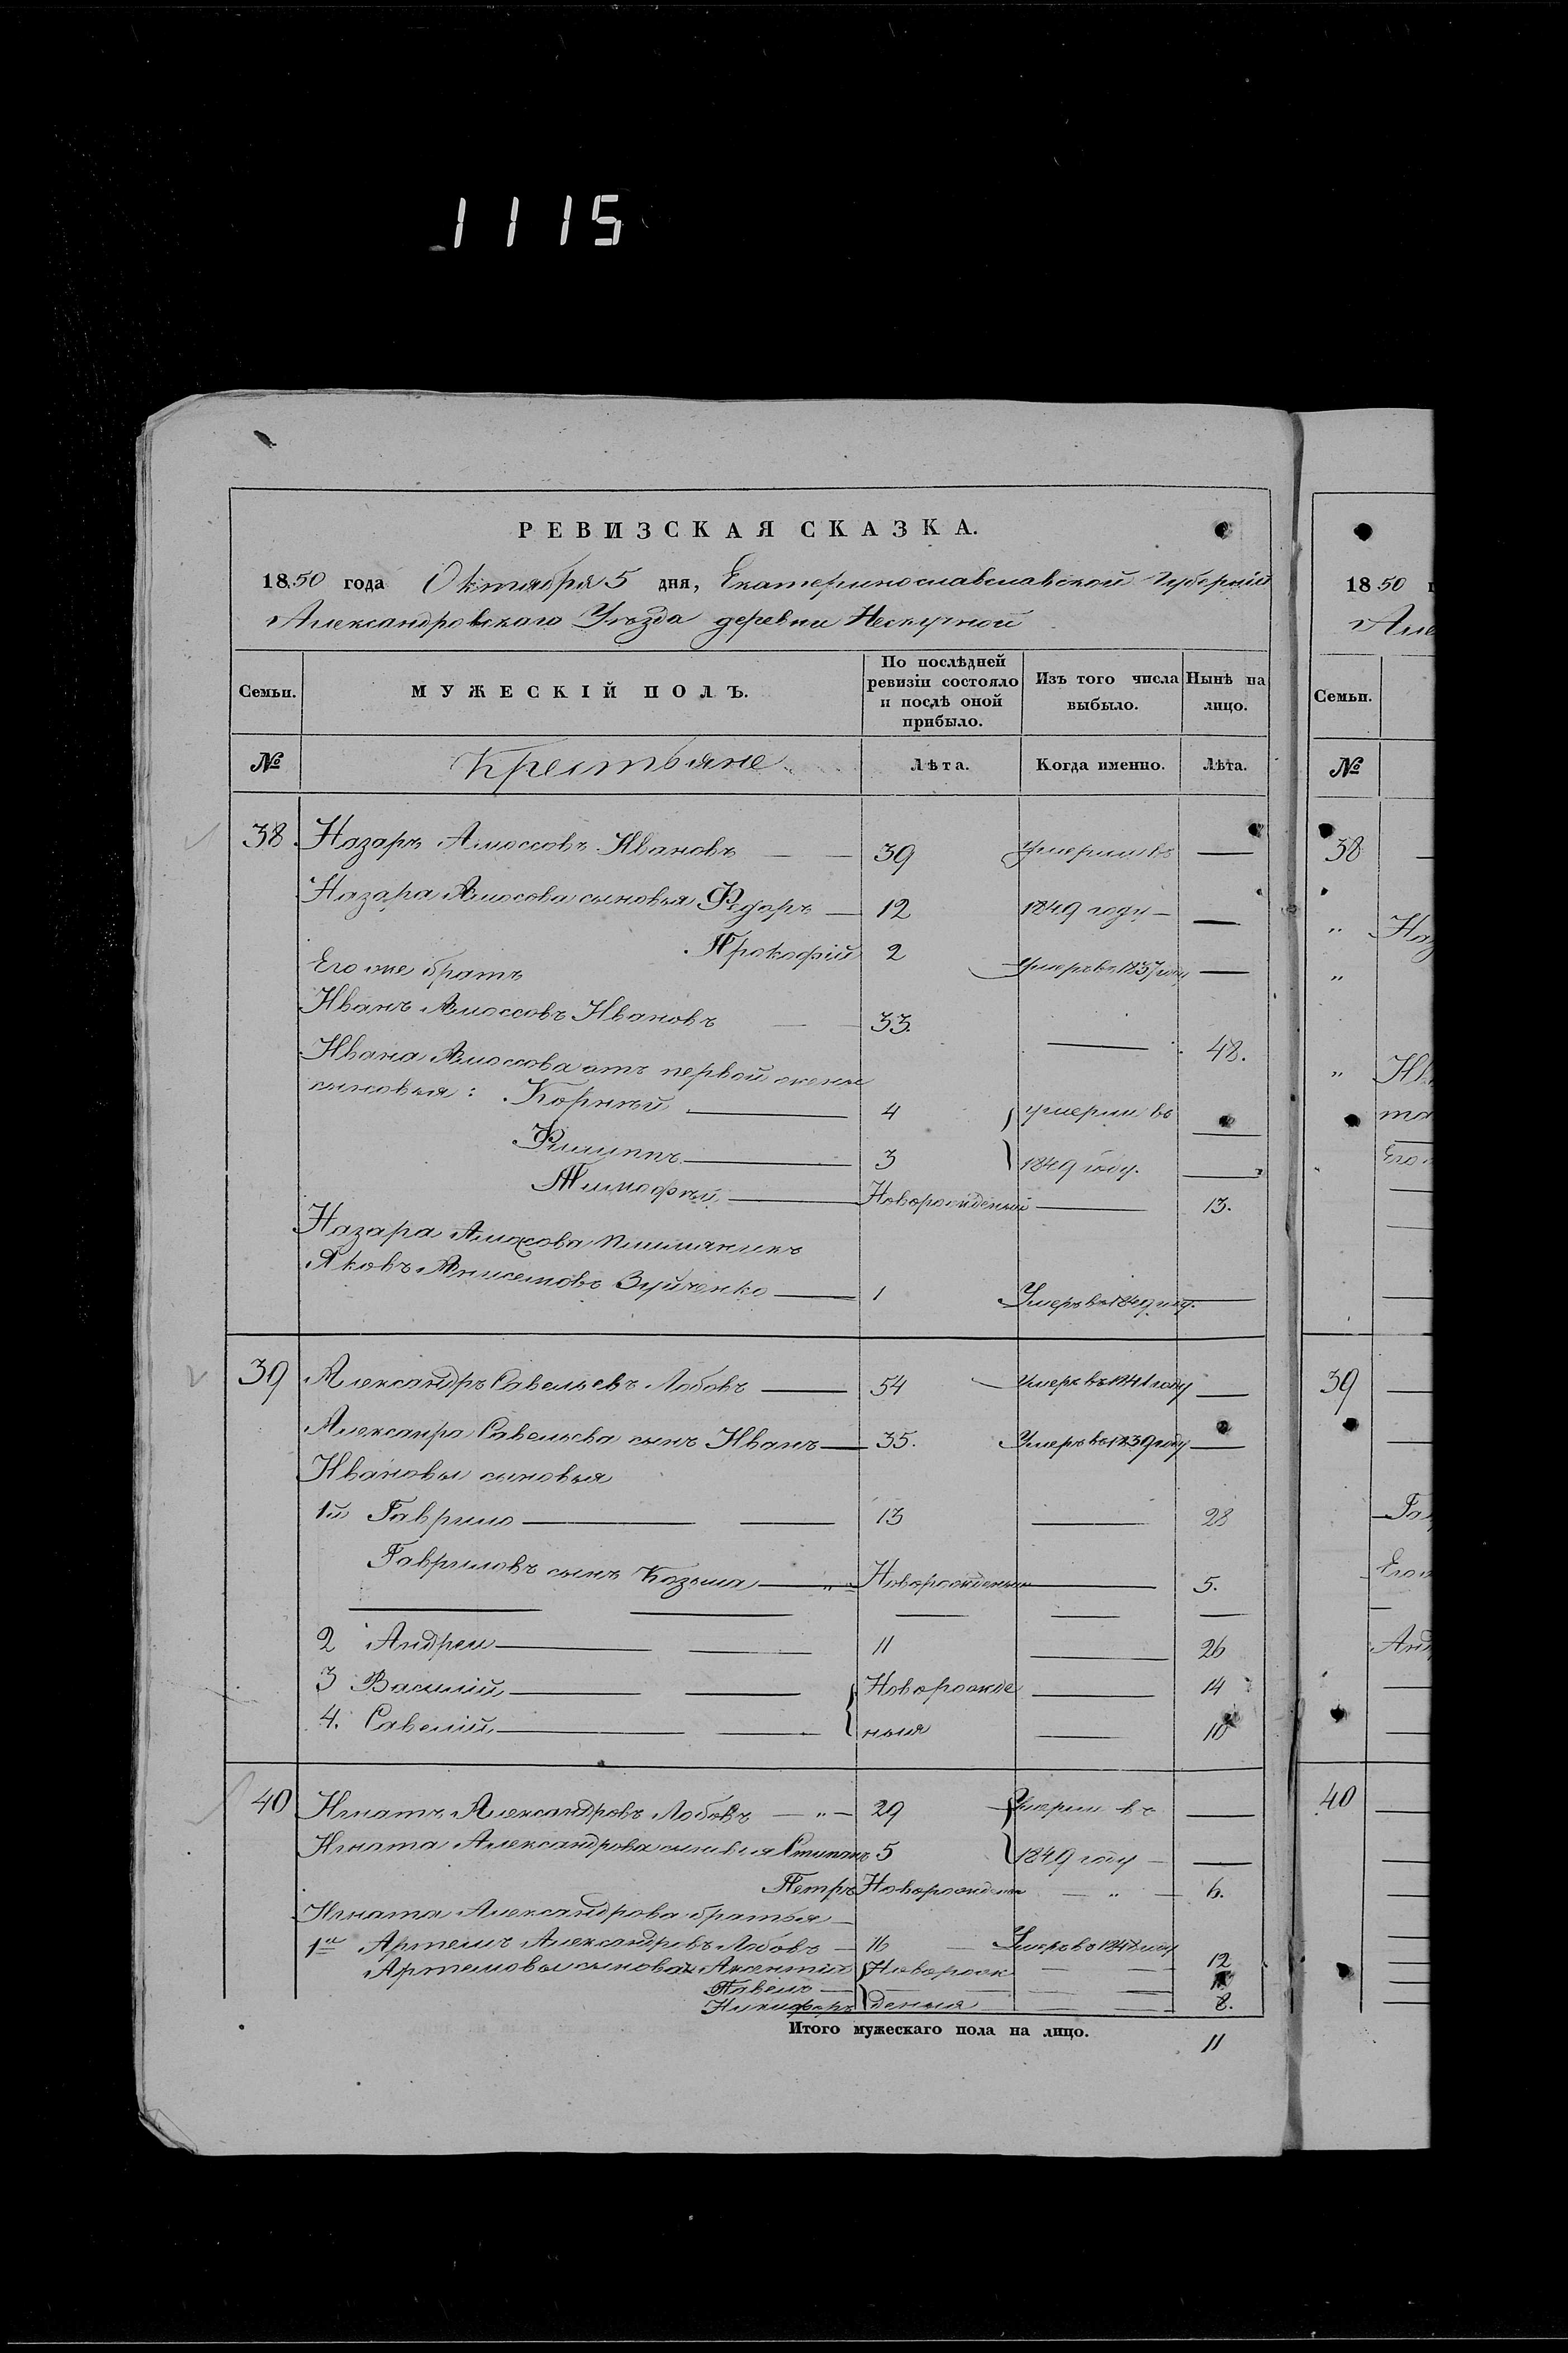 1115
РЕВИЗСКАЯ СКАЗКА.
1850 года Октября 5 дня, Екатеринославславской Губернии
Александровскаго Уезда деревни Нескучной
Семьи. МУЖЕСКІЙ ПОЛЪ. По послѣдней ревизіи состояло и послѣ оной прибыло. Изъ того числа выбыло. Нынѣ на лицо.
№ Крестьяне Лѣта. Когда именно. Лѣта.
38 Назаръ Амоссовъ Ивановъ — 39 Умерли въ —
Назара Амосова сыновья Федоръ — 12 1849 году — —
Прокофій 2 Умеръ въ 1837 году —
Его же братъ
Иванъ Амоссовъ Ивановъ — 33. — 48.
Ивана Амоссова отъ первой жены
сыновья: Корнѣй — 4 умерли въ —
Филиппъ — 3 1849 году. —
Тимофѣй — Новорожденый — 13.
Назара Амосова племяникъ
Яковъ Анисемовъ Зуйченко — 1 Умеръ въ 1849 году. —
39 Александръ Савельевъ Лобовъ — 54 Умеръ въ 1841 году —
Алексанра Савельева сынъ Иванъ — 35. Умеръ въ 1839 году —
Ивановы сыновья
1й Гаврило — 13 — 28
Гавриловъ сынъ Козьма — Новорожденый — 5.
2 Андреи — 11 — 26
3 Василій — Новорожде — 14
4. Савелій — ныя — 10
40 Игнатъ Александровъ Лобовъ — " — 29 Умерли въ —
Игната Александрова сыновья Степанъ 5 1849 году — —
Петръ Новорожден — " — 6.
Игната Александрова братья —
1й Артемъ Александровъ Лобовъ — 16 — Умеръ въ 1848 году
Артемовы сыновья Аксентій Новорож — — 12
Павелъ — — —
Никифоръ деныя — — 8.
Итого мужескаго пола на лицо. 11
1850
Але
Семьи.
№
38
" Наз
"
" Ив
Его
39
Га
Его
Анд
40